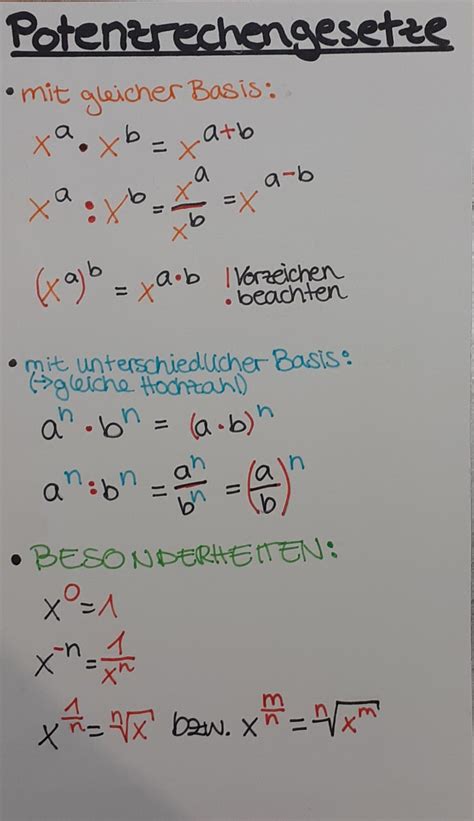 Potenzrechengesetze
• mit gleicher Basis:
xᵃ • xᵇ = xᵃ⁺ᵇ
xᵃ : xᵇ = xᵃ/xᵇ = xᵃ⁻ᵇ
(xᵃ)ᵇ = xᵃ·ᵇ ! Vorzeichen
beachten
• mit unterschiedlicher Basis:
(→gleiche Hochzahl)
aⁿ • bⁿ = (a • b)ⁿ
aⁿ : bⁿ = aⁿ/bⁿ = (a/b)ⁿ
• BESONDERHEITEN:
x⁰ = 1
x⁻ⁿ = 1/xⁿ
x^(1/n) = ⁿ√x bzw. x^(m/n) = ⁿ√xᵐ